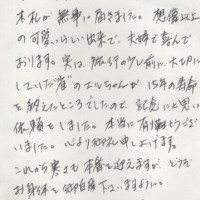 木札が無事に届きました。想像以上
の可愛いらしい出来で、大変喜んで
おります。実は、旅行の少し前に、大切に
していた雀のエルちゃんが15年の寿命
を終えたところでしたので、記念にと思い
依頼をしました。本当に有難うござい
いました。心より御礼申し上げます。
これから寒さも本格を迎えますが、どうぞ
お身体を御自愛下さいますように。